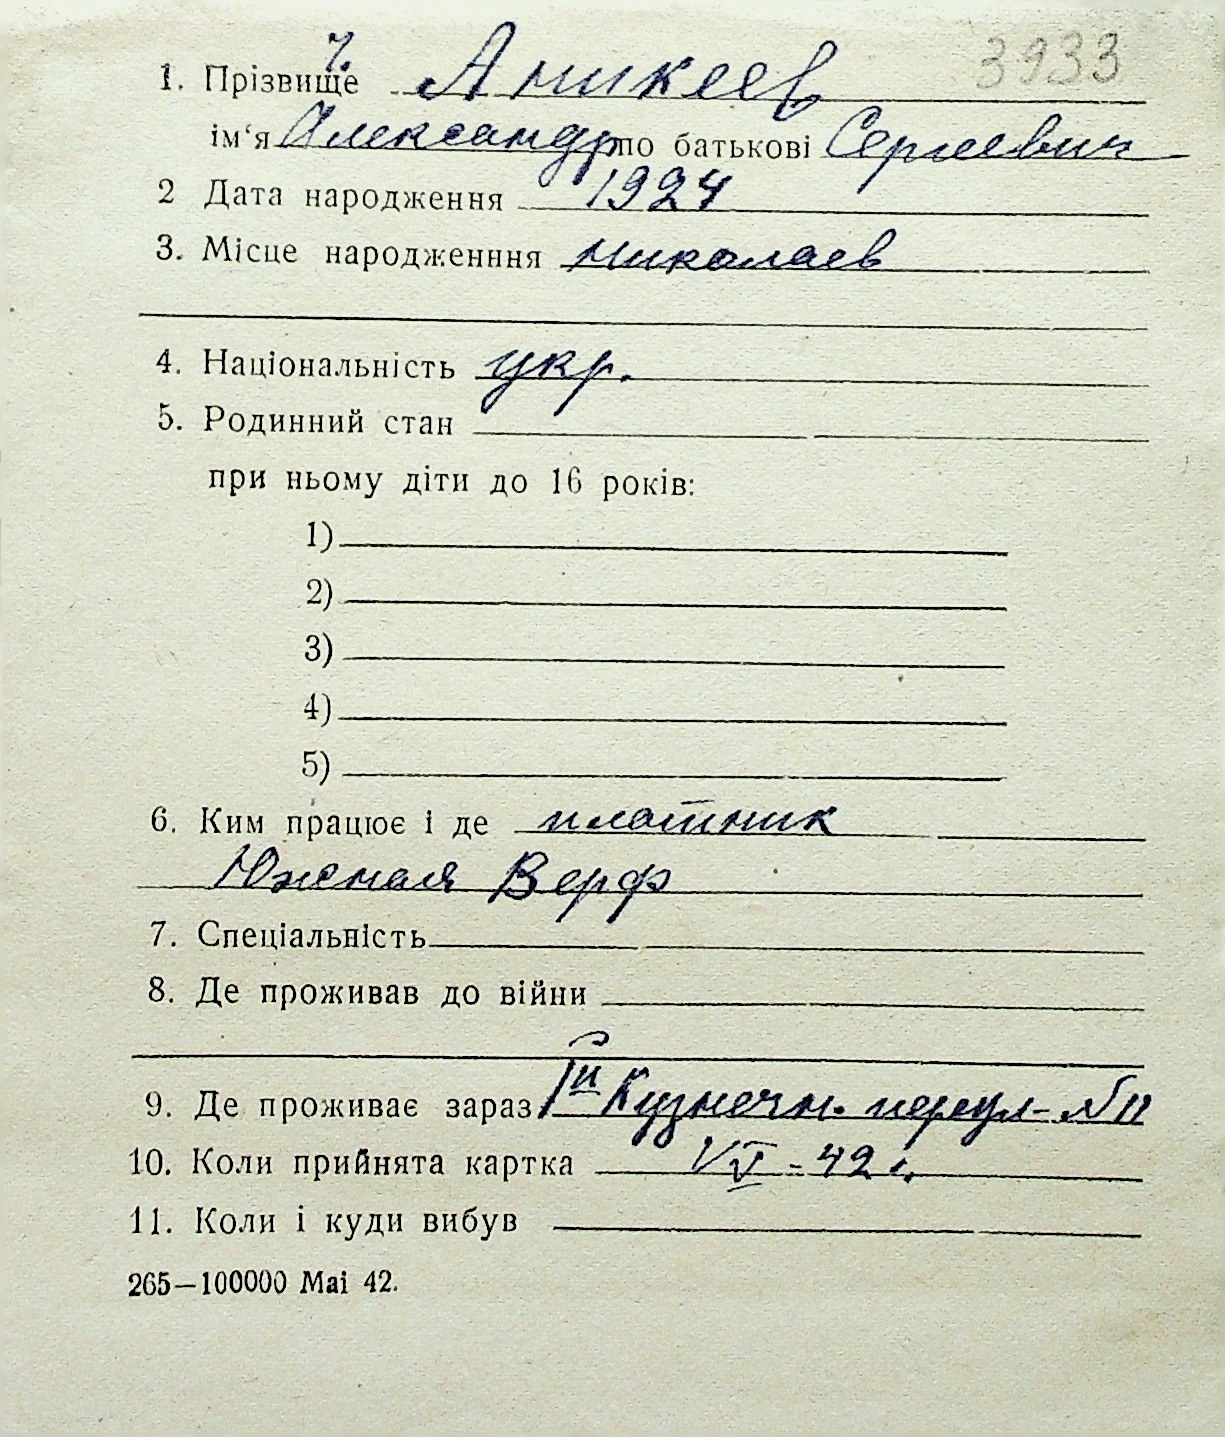 ч. 3933
1. Прізвище Аникеев
ім‘я Александр по батькові Сергеевич
2 Дата народження 1924
3. Місце народженння Николаев
4. Національність укр.
5. Родинний стан
при ньому діти до 16 років:
1)
2)
3)
4)
5)
6. Ким працює і де плотник
Южная Верф
7. Спеціальність
8. Де проживав до війни
9. Де проживає зараз Кузнечн. переул- №11
10. Коли прийнята картка V - 42 г.
11. Коли і куди вибув
265—100000 Mai 42.